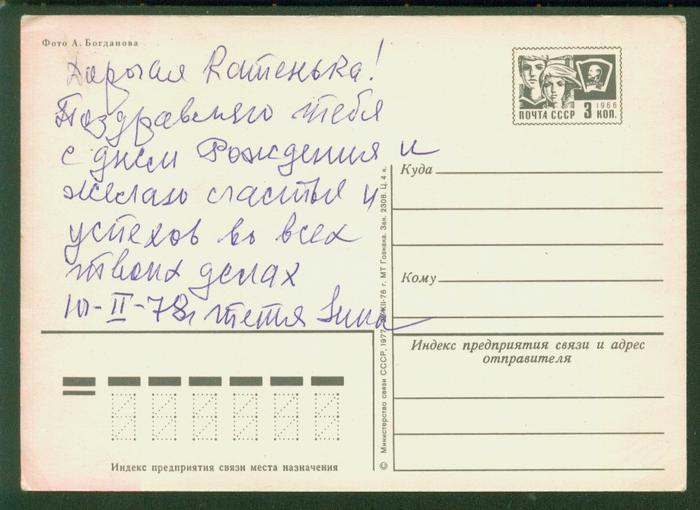 Фото А. Богданова
Дорогая Катенька!
Поздравляю тебя
с днем Рождения и
желаю счастья и
успехов во всех
твоих делах
10-II-78г тетя Зина
1966
ПОЧТА СССР 3 КОП.
Куда
Кому
Индекс предприятия связи и адрес
отправителя
Индекс предприятия связи места назначения
© Министерство связи СССР, 1977. XII-76 г. МТ Гознака. Зак. 2308. Ц. 4 к.